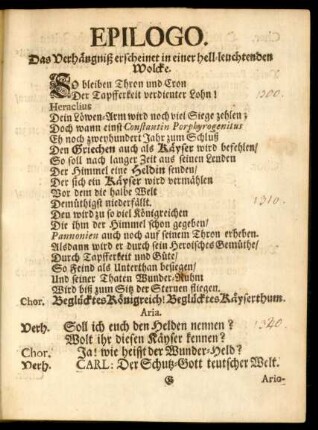 EPILOGO.
Das Verhängniß erscheinet in einer hell-leuchtenden
Wolcke.
SO bleiben Thron und Cron
Der Tapfferkeit verdienter Lohn! 1300.
Heraclius
Dein Löwen-Arm wird noch viel Siege zehlen;
Doch wann einst Constantin Porphyrogenitus
Eh noch zweyhundert Jahr zum Schluß
Den Griechen auch als Käyser wird befehlen/
So soll nach langer Zeit aus seinen Lenden
Der Himmel eine Heldin senden/
Der sich ein Käyser wird vermählen
Vor dem die halbe Welt 1310.
Demüthigst niederfällt.
Den wird zu so viel Königreichen
Die ihm der Himmel schon gegeben/
Pannonien auch noch auf seinem Thron erheben.
Alsdann wird er durch sein Heroisches Gemüthe/
Durch Tapfferkeit und Güte/
So Feind als Unterthan besiegen/
Und seiner Thaten Wunder-Ruhm
Wird biß zum Sitz der Sternen fliegen.
Chor. Beglücktes Königreich! Beglücktes Käyserthum.
Aria.
Verh. Soll ich euch den Helden nennen?
Wolt ihr diesen Käyser kennen?
Chor. Ja! wie heißt der Wunder-Held?
Verh. CARL: Der Schutz-Gott teutscher Welt.
G Ario-